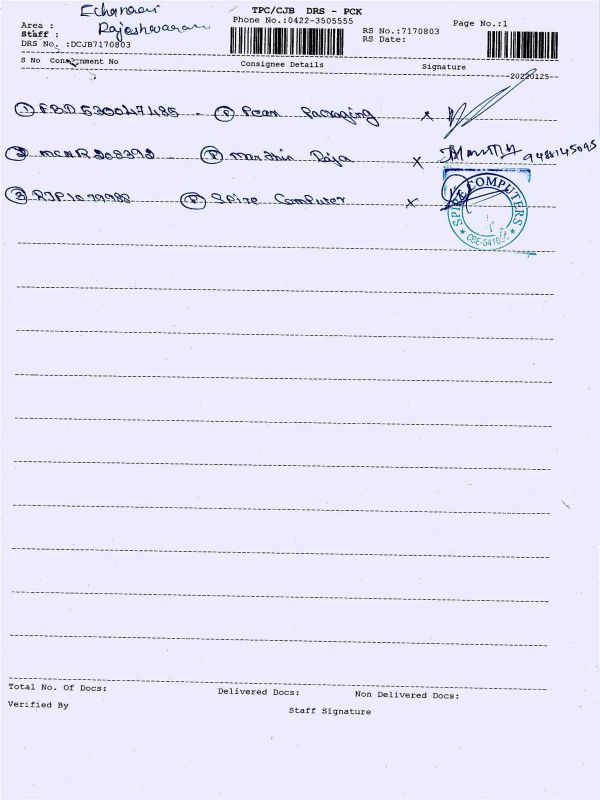 TPC/CJB DRS - PCK
Phone No.:0422-3505555
Page No.:1
Area : Echanari
Staff : Rajeshwaran
RS No.:7170803
RS Date:
DRS No. :DCJB7170803
S No Consignment No Consignee Details Signature
20220125
1 FBD 630047485 - P Pean Packaging x
2 P Manthin Raja x 9486145095
3 RJP 1079988 P Spire Computer x
SPIRE COMPUTERS
Total No. Of Docs: Delivered Docs: Non Delivered Docs:
Verified By Staff Signature